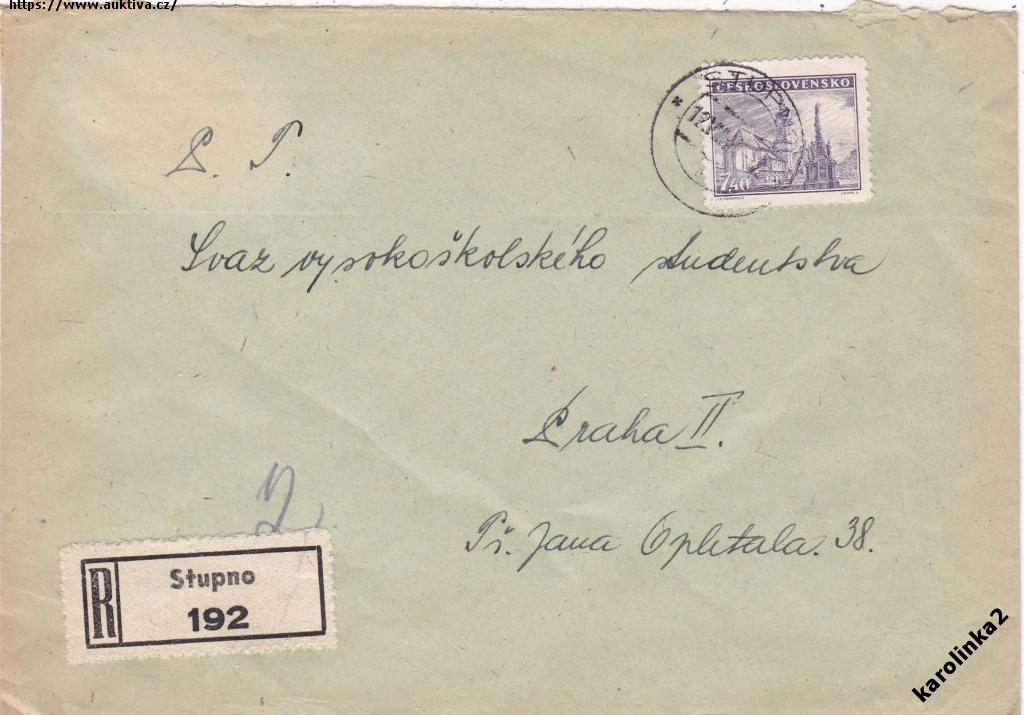 https://www.auktiva.cz/
STUPNO
ČESKOSLOVENSKO
7,40
P. T.
Svaz vysokoškolského studentstva
Praha II.
Tř. Jana Opletala. 38.
R
Stupno
192
karolinka2